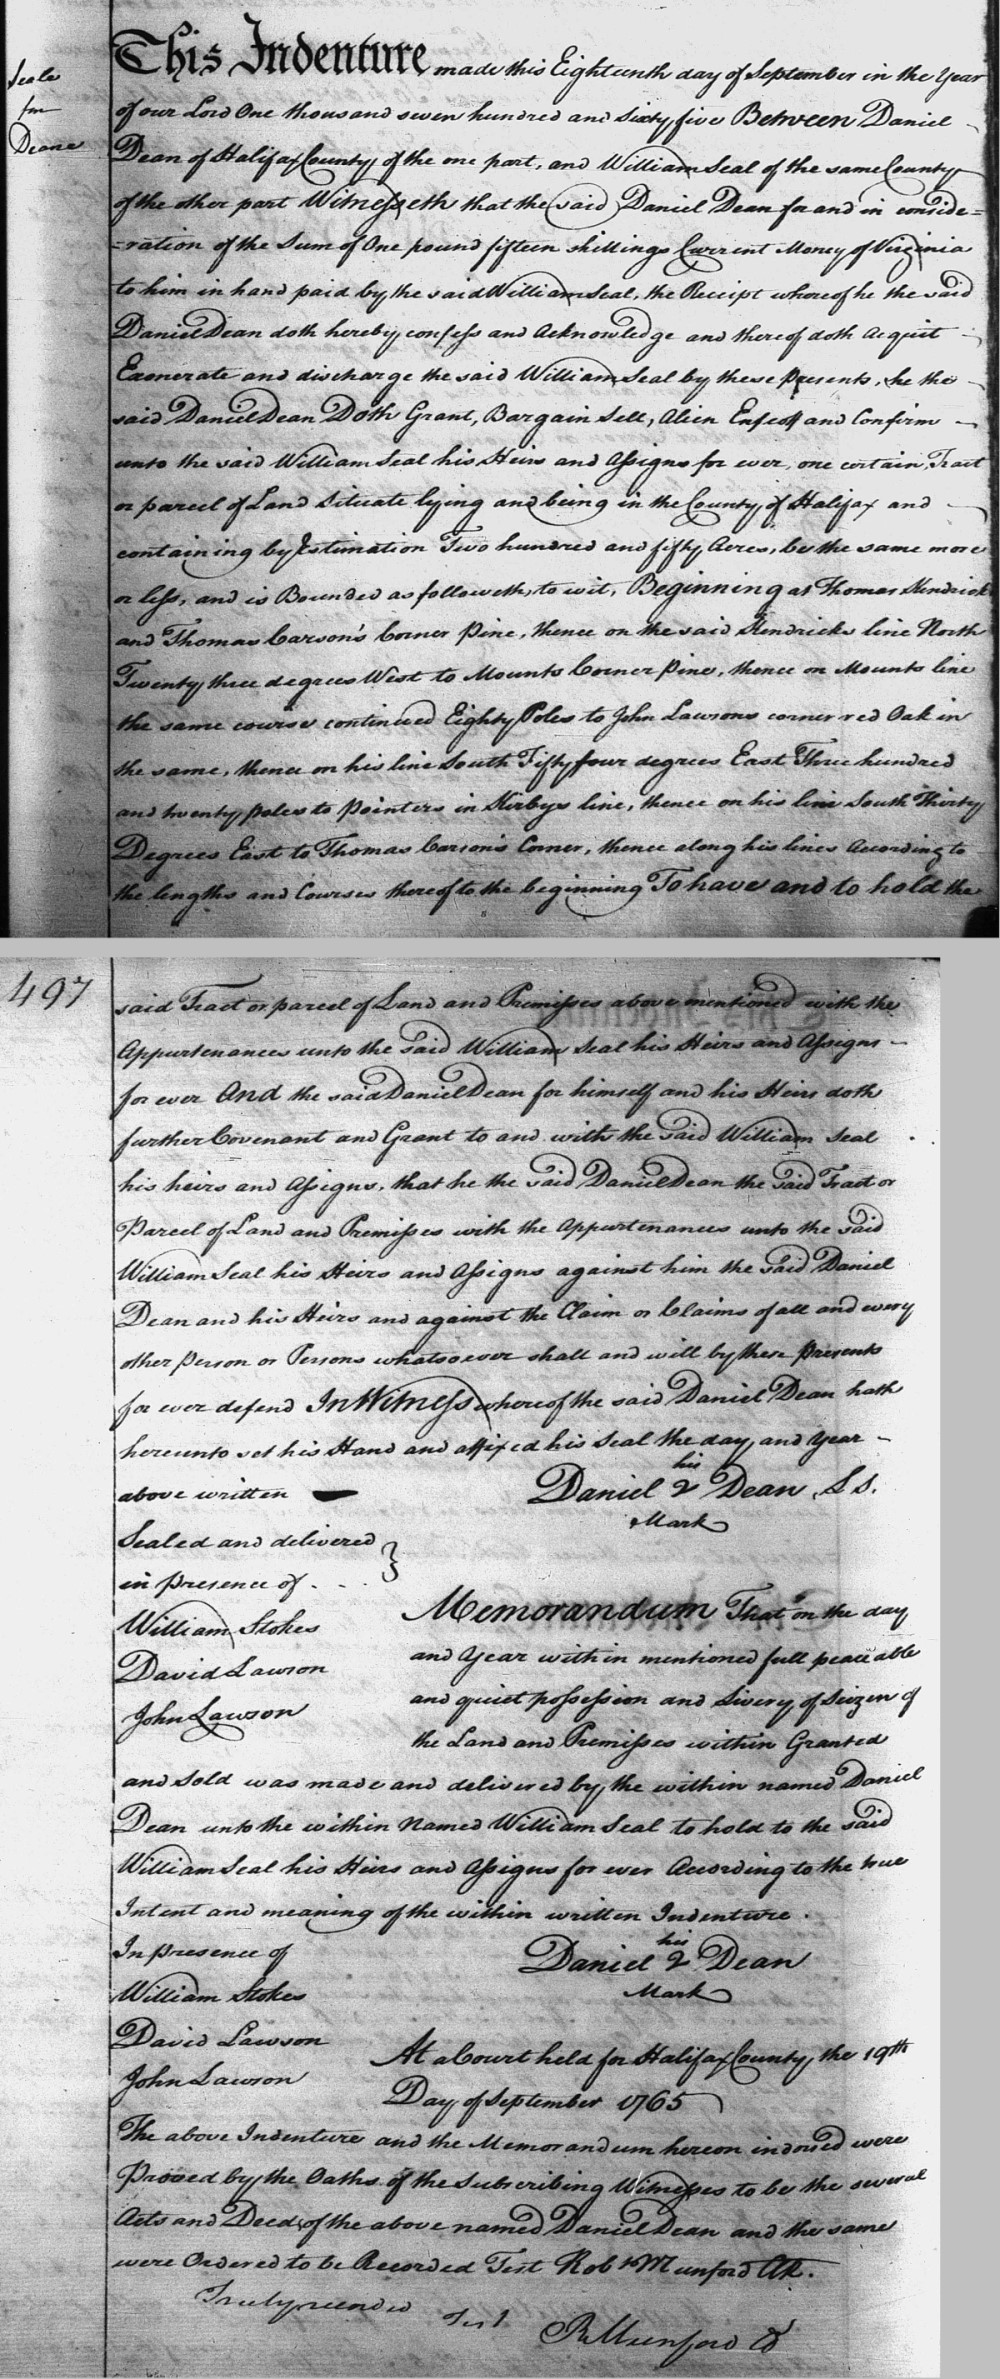 Seale
from
Deane
This Indenture made this Eighteenth day of September in the Year
of our Lord One thousand seven hundred and Sixty five Between Daniel
Dean of Halifax County of the one part, and William Seal of the same County
of the other part Witnesseth that the said Daniel Dean for and in conside=
=ration of the Sum of One pound fifteen shillings Current Money of Virginia
to him in hand paid by the said William Seal, the Receipt whereof he the said
Daniel Dean doth hereby confess and Acknowledge and thereof doth Acquit
Exonerate and discharge the said William Seal by these presents, he the
said Daniel Dean Doth Grant, Bargain Sell, Alien Enfeoff and Confirm
unto the said William Seal his Heirs and Assigns for ever, one certain Tract
or parcel of Land Situate lying and being in the County of Halifax and
containing by Estimation Two hundred and fifty Acres, be the same more
or less, and is Bounded as followeth, to wit, Beginning at Thomas Hendrick
and Thomas Carson's Corner Pine, thence on the said Hendricks line North
Twenty three degrees West to Mounts Corner Pine, thence on Mounts line
the same course continued Eighty Poles to John Lawsons corner red Oak in
the same, thence on his line South Fifty four degrees East Three hundred
and twenty poles to Pointers in Kirbys line, thence on his line South Thirty
Degrees East to Thomas Carson's Corner, thence along his lines According to
the lengths and Courses thereof to the beginning To have and to hold the
497
said Tract or parcel of Land and Premisses above mentioned with the
Appurtenances unto the said William Seal his Heirs and Assigns
for ever And the said Daniel Dean for himself and his Heirs doth
further Covenant and Grant to and with the said William Seal
his heirs and Assigns, that he the said Daniel Dean the said Tract or
Parcel of Land and Premisses with the Appurtenances unto the said
William Seal his Heirs and Assigns against him the said Daniel
Dean and his Heirs and against the Claim or Claims of all and every
other Person or Persons whatsoever shall and will by these Presents
for ever defend In Witness whereof the said Daniel Dean hath
hereunto set his Hand and affixed his Seal the day and Year
above written
his
Daniel 2 Dean L S.
Mark
Sealed and delivered }
in presence of . . .
William Stokes
David Lawson
John Lawson
Memorandum That on the day
and Year within mentioned full peaceable
and quiet possession and Livery of Seizen of
the Land and Premisses within Granted
and Sold was made and delivered by the within named Daniel
Dean unto the within Named William Seal to hold to the said
William Seal his Heirs and Assigns for ever According to the true
Intent and meaning of the within written Indenture.
In presence of
his
Daniel 2 Dean
Mark
William Stokes
David Lawson
John Lawson
At a Court held for Halifax County, the 19th
Day of September 1765
The above Indenture and the Memorandum hereon indorsed were
Proved by the Oaths of the Subscribing Witnesses to be the several
Acts and Deeds of the above named Daniel Dean and the same
were Ordered to be Recorded Test Robt Munford Clk.
Truly recorded
Test
R Munford Cl